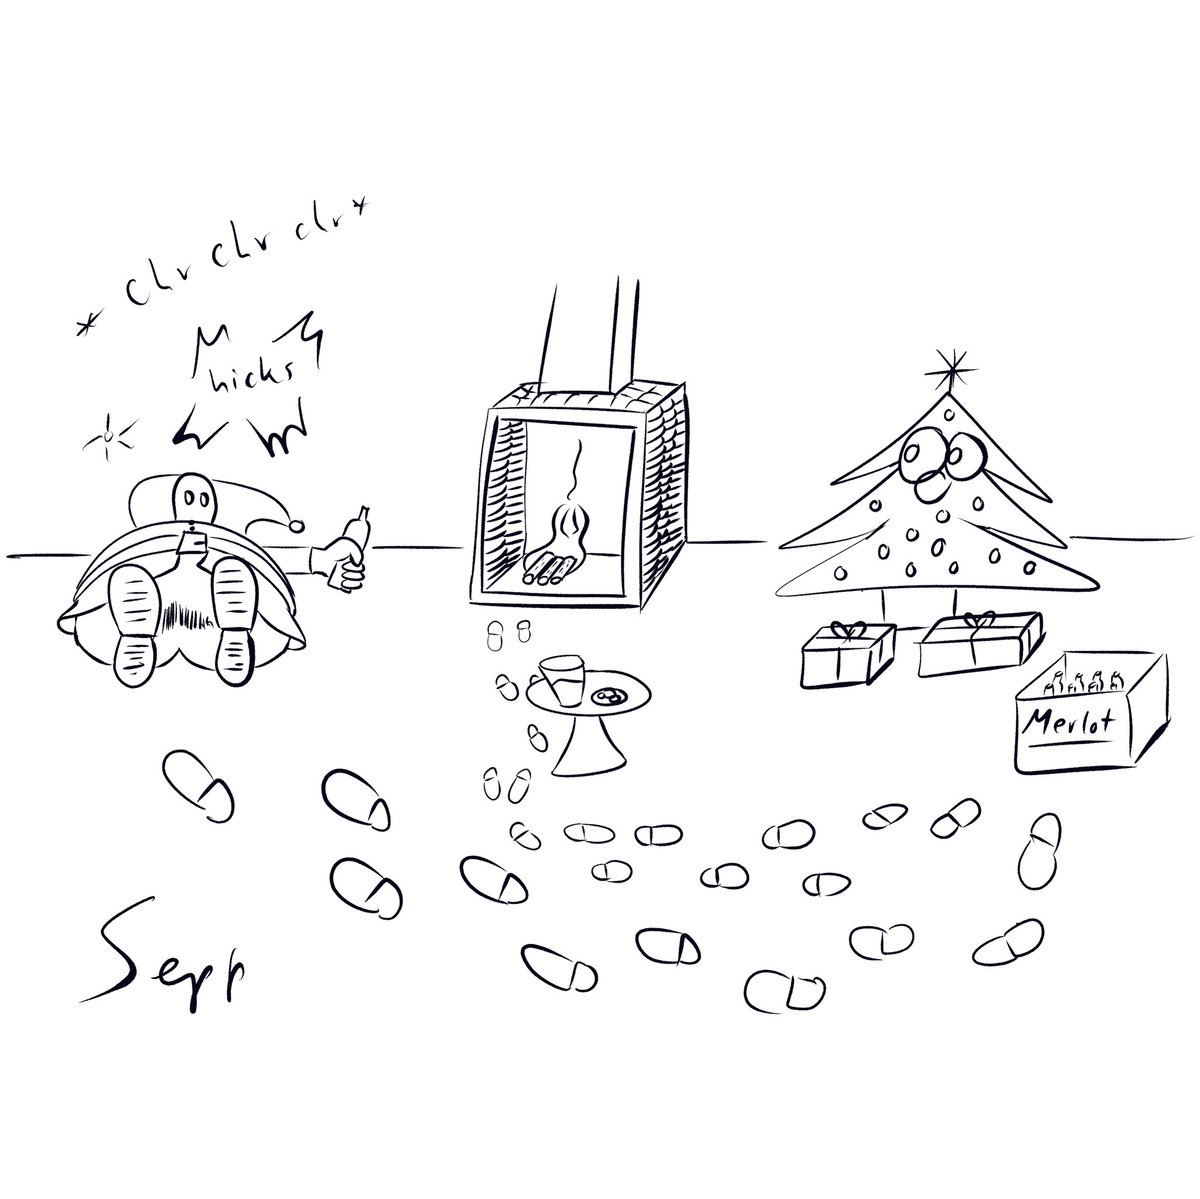 * chr chr chr *
hicks
Merlot
Sepp